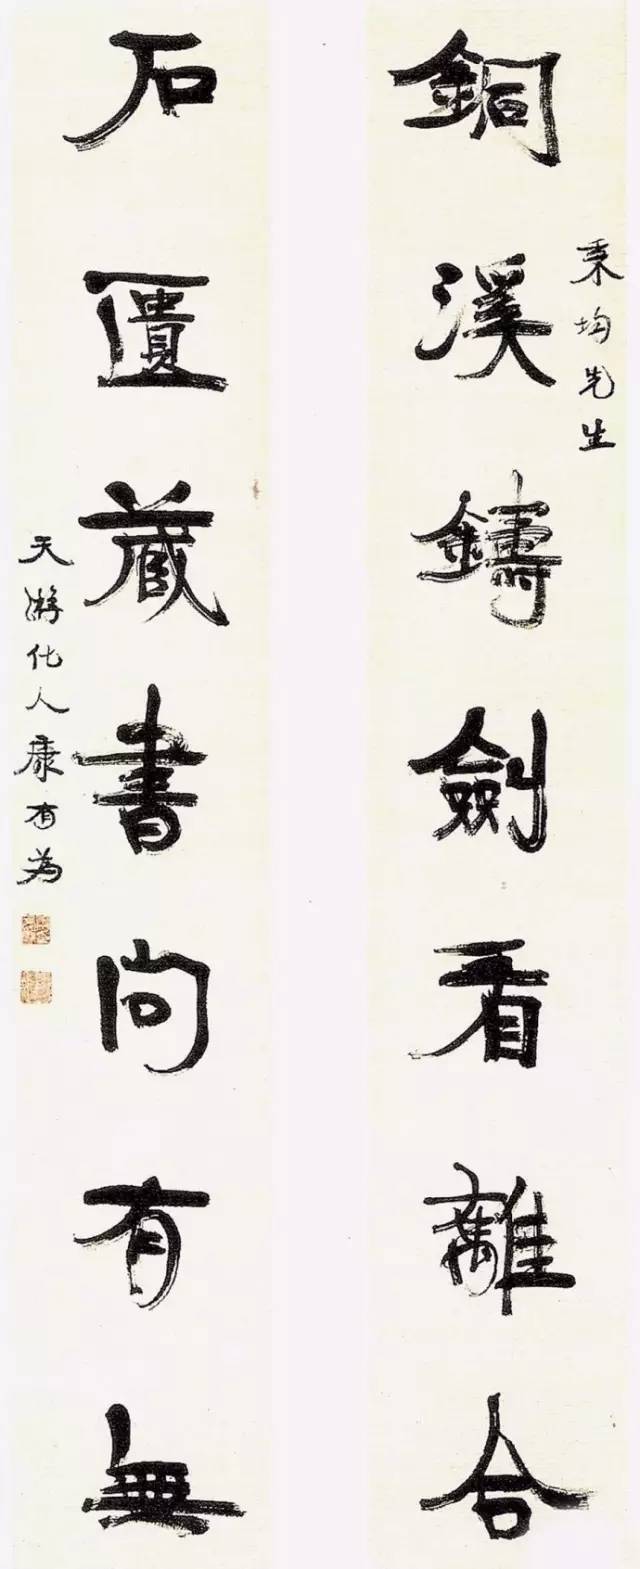 銅溪鑄劍看離合
秉均先生
石匱藏書向有無
天游化人康有為